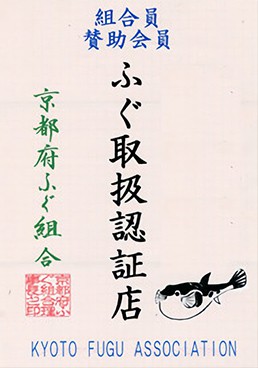 組合員
賛助会員
ふぐ取扱認証店
京都府ふぐ組合
京都府ふ
ぐ組合理
事長之印
KYOTO FUGU ASSOCIATION